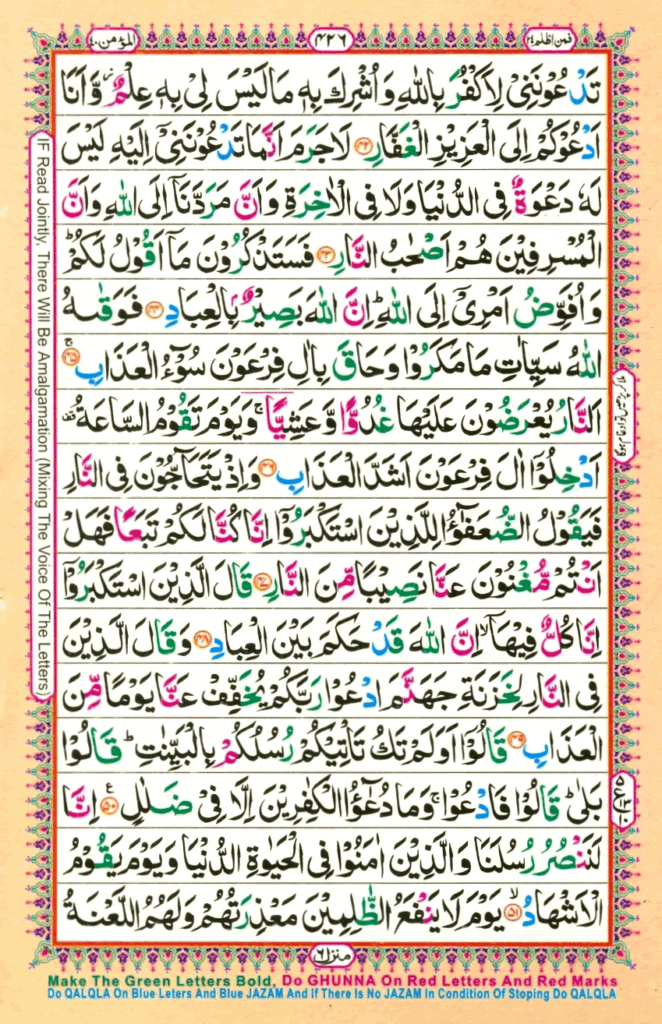 المؤمن ٤٠
٤٢٦
فمن اظلم ٢٤
تَدْعُوْنَنِیْ لِاَكْفُرَ بِاللّٰهِ وَاُشْرِكَ بِهٖ مَا لَیْسَ لِیْ بِهٖ عِلْمٌ٘ وَّاَنَا
اَدْعُوْكُمْ اِلَی الْعَزِیْزِ الْغَفَّارِ ﴿۴۲﴾ لَا جَرَمَ اَنَّمَا تَدْعُوْنَنِیْۤ اِلَیْهِ لَیْسَ
لَهٗ دَعْوَةٌ فِی الدُّنْیَا وَلَا فِی الْاٰخِرَةِ وَاَنَّ مَرَدَّنَاۤ اِلَی اللّٰهِ وَاَنَّ
الْمُسْرِفِیْنَ هُمْ اَصْحٰبُ النَّارِ ﴿۴۳﴾ فَسَتَذْكُرُوْنَ مَاۤ اَقُوْلُ لَكُمْ ؕ
وَاُفَوِّضُ اَمْرِیْۤ اِلَی اللّٰهِ ؕ اِنَّ اللّٰهَ بَصِیْرٌۢ بِالْعِبَادِ ﴿۴۴﴾ فَوَقٰىهُ
اللّٰهُ سَیِّاٰتِ مَا مَكَرُوْا وَحَاقَ بِاٰلِ فِرْعَوْنَ سُوْٓءُ الْعَذَابِ ۚ﴿۴۵﴾
اَلنَّارُ یُعْرَضُوْنَ عَلَیْهَا غُدُوًّا وَّعَشِیًّا ۚ وَیَوْمَ تَقُوْمُ السَّاعَةُ ۫
اَدْخِلُوْۤا اٰلَ فِرْعَوْنَ اَشَدَّ الْعَذَابِ ﴿۴۶﴾ وَاِذْ یَتَحَآجُّوْنَ فِی النَّارِ
فَیَقُوْلُ الضُّعَفٰٓؤُا لِلَّذِیْنَ اسْتَكْبَرُوْۤا اِنَّا كُنَّا لَكُمْ تَبَعًا فَهَلْ
اَنْتُمْ مُّغْنُوْنَ عَنَّا نَصِیْبًا مِّنَ النَّارِ ﴿۴۷﴾ قَالَ الَّذِیْنَ اسْتَكْبَرُوْۤا
اِنَّا كُلٌّ فِیْهَاۤ ۙ اِنَّ اللّٰهَ قَدْ حَكَمَ بَیْنَ الْعِبَادِ ﴿۴۸﴾ وَقَالَ الَّذِیْنَ
فِی النَّارِ لِخَزَنَةِ جَهَنَّمَ ادْعُوْا رَبَّكُمْ یُخَفِّفْ عَنَّا یَوْمًا مِّنَ
الْعَذَابِ ﴿۴۹﴾ قَالُوْۤا اَوَلَمْ تَكُ تَاْتِیْكُمْ رُسُلُكُمْ بِالْبَیِّنٰتِ ؕ قَالُوْا
بَلٰی ؕ قَالُوْا فَادْعُوْا ۚ وَمَا دُعٰٓؤُا الْكٰفِرِیْنَ اِلَّا فِیْ ضَلٰلٍ ﴿۵۰﴾ اِنَّا
لَنَنْصُرُ رُسُلَنَا وَالَّذِیْنَ اٰمَنُوْا فِی الْحَیٰوةِ الدُّنْیَا وَیَوْمَ یَقُوْمُ
الْاَشْهَادُ ۙ﴿۵۱﴾ یَوْمَ لَا یَنْفَعُ الظّٰلِمِیْنَ مَعْذِرَتُهُمْ وَلَهُمُ اللَّعْنَةُ
منزل ٦
IF Read Jointly, There Will Be Amalgamation (Mixing The Voice Of The Letters)
Make The Green Letters Bold, Do GHUNNA On Red Letters And Red Marks
Do QALQLA On Blue Leters And Blue JAZAM And If There Is No JAZAM In Condition Of Stoping Do QALQLA